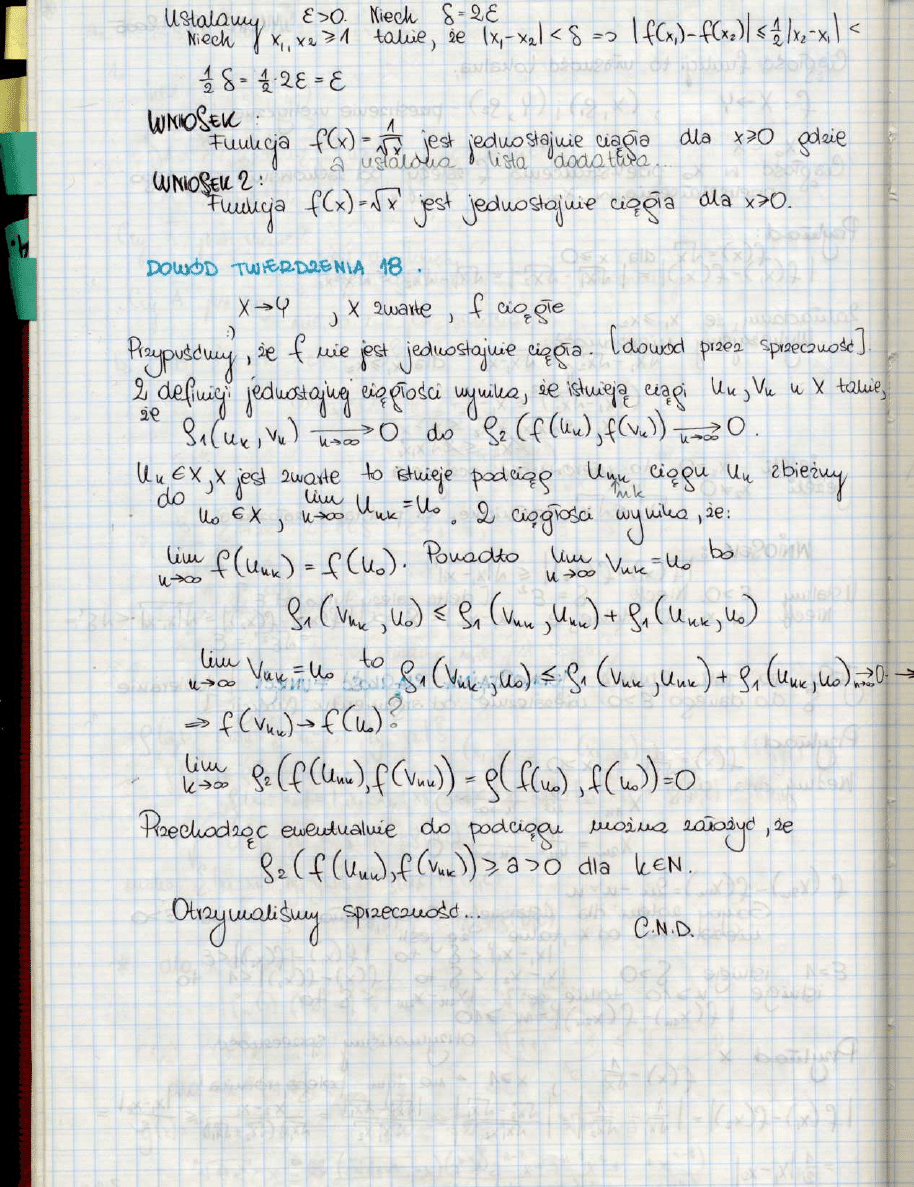 Ustalamy ε>0. Niech δ=2ε
Niech x₁, x₂ ≥ 1 takie, że |x₁-x₂| < δ => |f(x₁)-f(x₂)| ≤ ½|x₂-x₁| <
½ δ = ½·2ε = ε
WNIOSEK :
Funkcja f(x) = 1/√x jest jednostajnie ciągła dla x≥a gdzie
a ustalona liczba dodatnia...
WNIOSEK 2 :
Funkcja f(x)=√x jest jednostajnie ciągła dla x≥0.
DOWÓD TWIERDZENIA 18.
X→Y , X zwarte , f ciągłe
Przypuśćmy :) , że f nie jest jednostajnie ciągła. [dowód przez sprzeczność].
Z definicji jednostajnej ciągłości wynika, że istnieją ciągi Uₙ, Vₙ w X takie,
że
ρ₁(uₙ, vₙ) →(n→∞) 0 do ρ₂(f(uₙ), f(vₙ)) →(n→∞) 0.
Uₙ ∈ X, X jest zwarte to istnieje podciąg Uₙₖ ciągu Uₙ zbieżny
nk
do u₀ ∈ X , lim n→∞ Uₙₖ = U₀ . Z ciągłości wynika, że:
lim n→∞ f(Uₙₖ) = f(U₀). Ponadto lim n→∞ Vₙₖ = U₀ bo
ρ₁(Vₙₖ, U₀) ≤ ρ₁(Vₙₖ, Uₙₖ) + ρ₁(Uₙₖ, U₀)
lim n→∞ Vₙₖ = U₀ to ρ₁(Vₙₖ, U₀) ≤ ρ₁(Vₙₖ, Uₙₖ) + ρ₁(Uₙₖ, U₀) →(n→∞) 0 →
=> f(Vₙₖ) → f(U₀) ?
lim k→∞ ρ₂(f(Uₙₖ), f(Vₙₖ)) = ρ(f(U₀), f(U₀)) = 0
Przechodząc ewentualnie do podciągu można założyć, że
ρ₂(f(Uₙₖ), f(Vₙₖ)) ≥ a > 0 dla k∈N.
Otrzymaliśmy sprzeczność...
C.N.D.